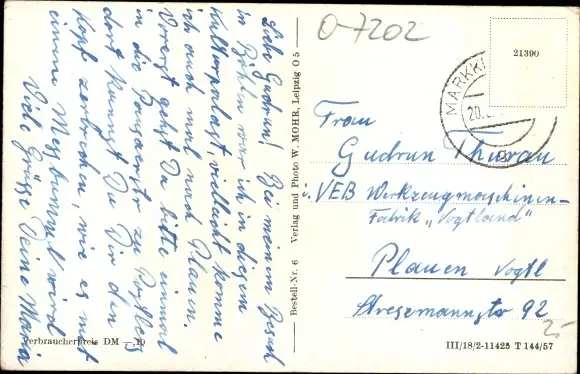 Liebe Gudrun! Bei meinem Besuch
in Böhlen war ich in diesem
Kulturpalast, vielleicht komme
ich auch mal nach Plauen.
Vorerst gehst Du bitte einmal
in die zu
dort kannst Du Dir den
Kopf zerbrechen, wie es mit
einem Messbummel wird.
Viele Grüsse Deine Maria
Verbraucherpreis DM —,10
Bestell-Nr. 6 Verlag und Photo W. MOHR, Leipzig O 5
O-7202
21390
MARKK
20.
Frau
Gudrun Thurau
VEB Werkzeugmaschinen-
Fabrik „Vogtland"
Plauen Vogtl
Stresemannstr 92
25-
III/18/2-11425 T 144/57